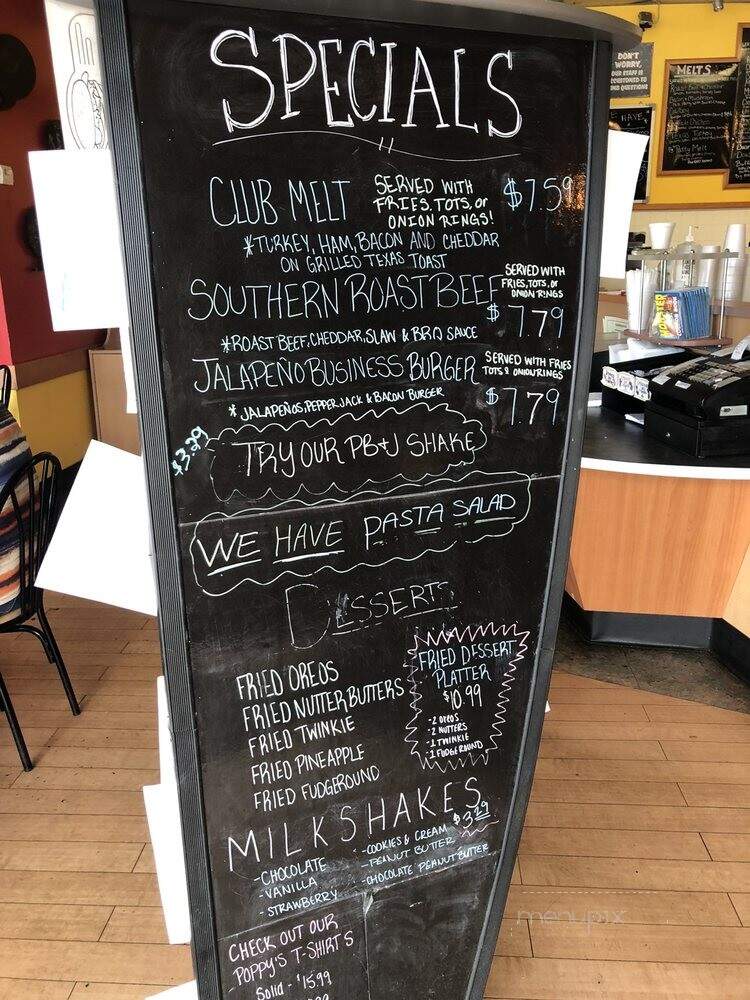 SPECIALS
CLUB MELT
SERVED WITH
FRIES, TOTS, or
ONION RINGS!
$7.59
*TURKEY, HAM, BACON AND CHEDDAR
ON GRILLED TEXAS TOAST
SOUTHERN ROAST BEEF
SERVED WITH
FRIES, TOTS, or
ONION RINGS
$7.79
*ROAST BEEF, CHEDDAR, SLAW & BBQ SAUCE
JALAPEÑO BUSINESS BURGER
SERVED WITH FRIES
TOTS & ONION RINGS
$7.79
* JALAPEÑOS, PEPPER JACK & BACON BURGER
$3.29
TRY OUR PB+J SHAKE
WE HAVE PASTA SALAD
DESSERTS
FRIED OREOS
FRIED NUTTER BUTTERS
FRIED TWINKIE
FRIED PINEAPPLE
FRIED FUDGEROUND
FRIED DESSERT
PLATTER
$10.99
-2 OREOS
-2 NUTTERS
-1 TWINKIE
-1 FUDGEROUND
MILKSHAKES
$3.29
-CHOCOLATE
-VANILLA
-STRAWBERRY
-COOKIES & CREAM
-PEANUT BUTTER
-CHOCOLATE PEANUT BUTTER
CHECK OUT OUR
POPPY'S T-SHIRTS
Solid - $15.99
DON'T
WORRY,
OUR STAFF IS
ACCUSTOMED TO
DUMB QUESTIONS
MELTS
Patty Melt
menupix